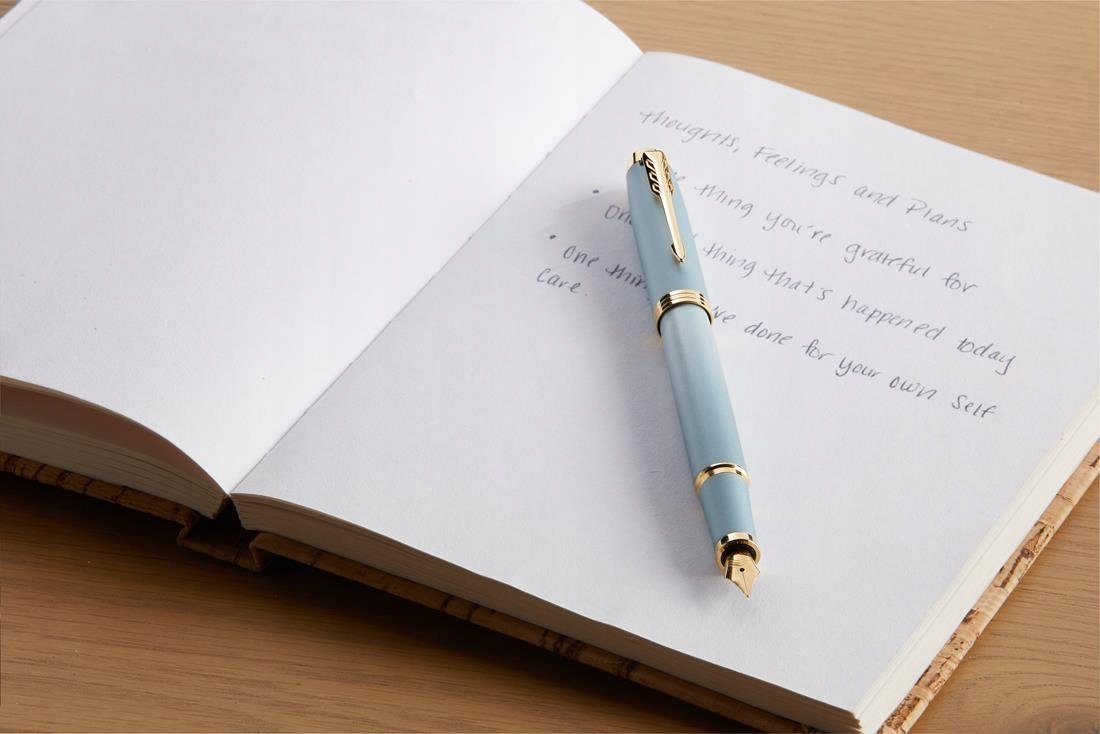 thoughts, Feelings and Plans
thing you're grateful for
• One thing that's happened today
• One thing done for your own Self
care.